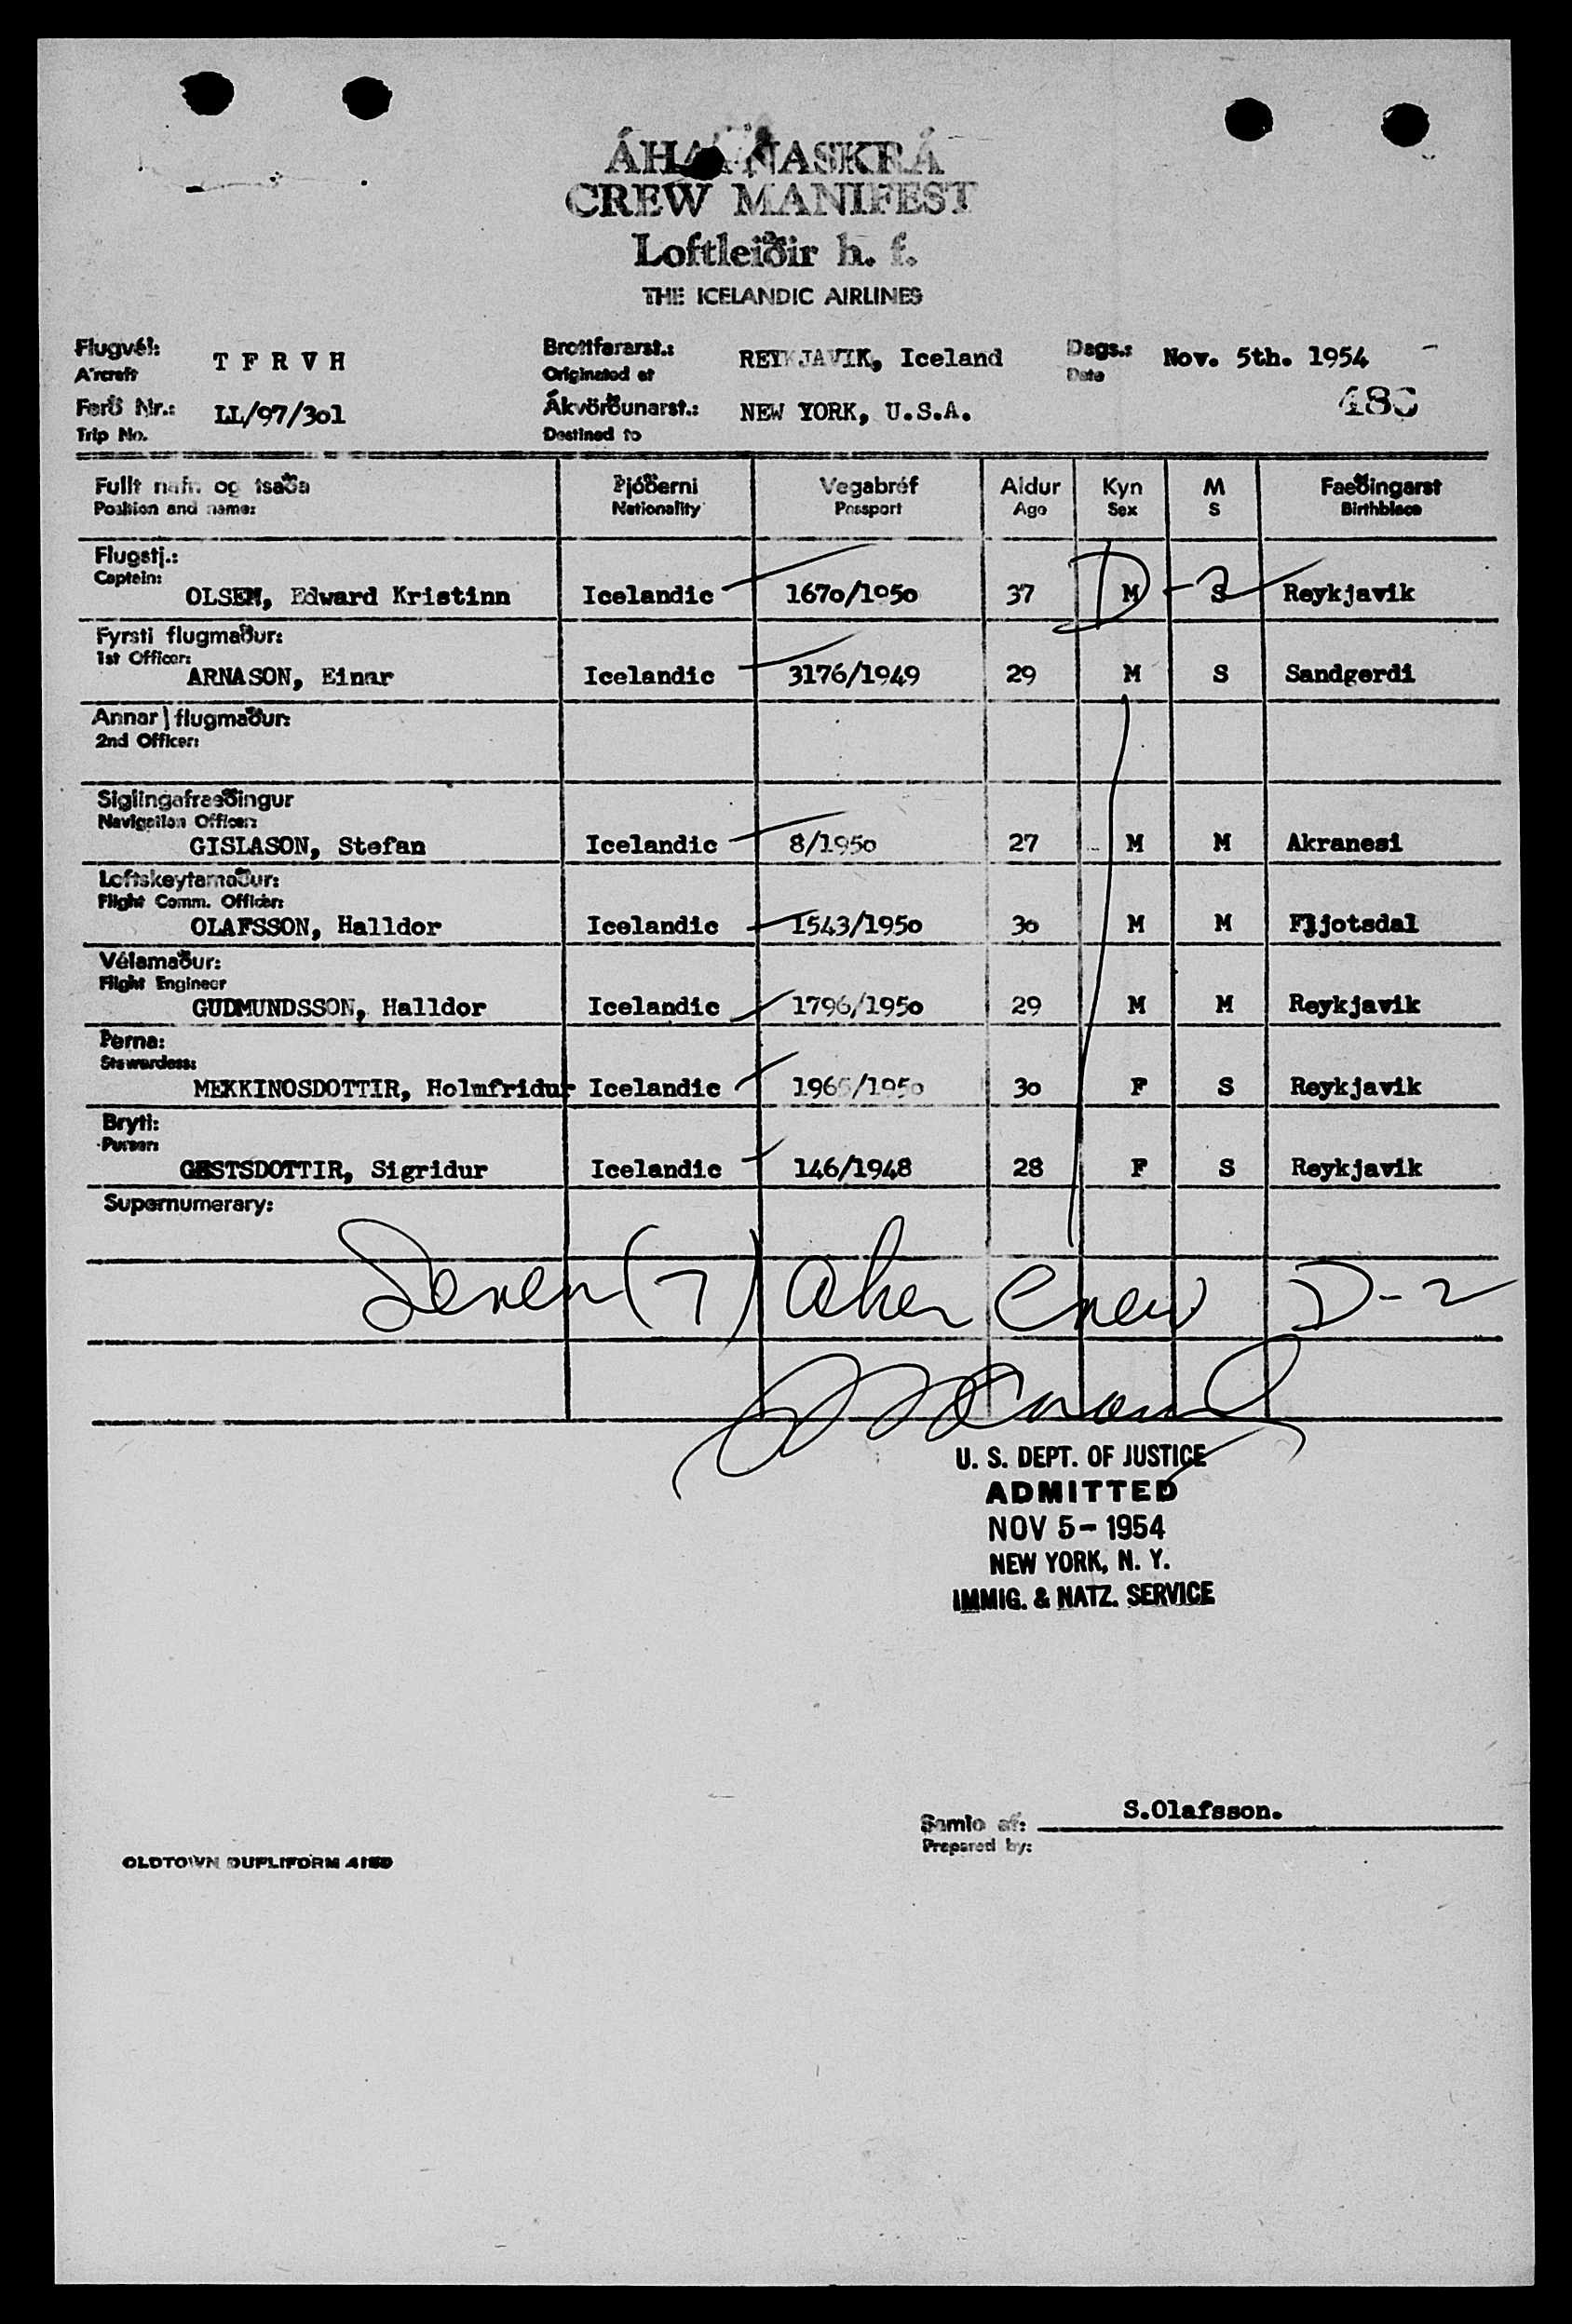 CREW MANIFEST
Loftleiðir h. f.
THE ICELANDIC AIRLINES
Flugvél: T F R V H Brottfararst.: REYKJAVIK, Iceland Dags.: Nov. 5th. 1954
Aircraft Originated at Date
Ferð Nr.: LL/97/3o1 Ákvörðunarst.: NEW YORK, U.S.A.
Trip No. Destined to
Fullt nafn og Þjóðerni Vegabréf Aldur Kyn M Faeðingarst
Position and name: Nationality Passport Age Sex S Birthplace
Flugstj.:
Captain:
OLSEN, Edward Kristinn Icelandic 167o/195o 37 M S Reykjavik
D-2
Fyrsti flugmaður:
1st Officer:
ARNASON, Einar Icelandic 3176/1949 29 M S Sandgerdi
Annar flugmaður:
2nd Officer:
Siglingafraeðingur
Navigation Officer:
GISLASON, Stefan Icelandic 8/195o 27 M M Akranesi
Loftskeytamaður:
Flight Comm. Officer:
OLAFSSON, Halldor Icelandic 1543/195o 3o M M Fljotsdal
Vélamaður:
Flight Engineer
GUDMUNDSSON, Halldor Icelandic 1796/195o 29 M M Reykjavik
Þerna:
Stewardess:
MEKKINOSDOTTIR, Holmfridur Icelandic 3o F S Reykjavik
Bryti:
Purser:
GESTSDOTTIR, Sigridur Icelandic 146/1948 28 F S Reykjavik
Supernumerary:
Seven (7) other crew D-2
U. S. DEPT. OF JUSTICE
ADMITTED
NOV 5 - 1954
NEW YORK, N. Y.
IMMIG. & NATZ. SERVICE
S.Olafsson.
Prepared by:
OLDTOWN DUPLIFORM